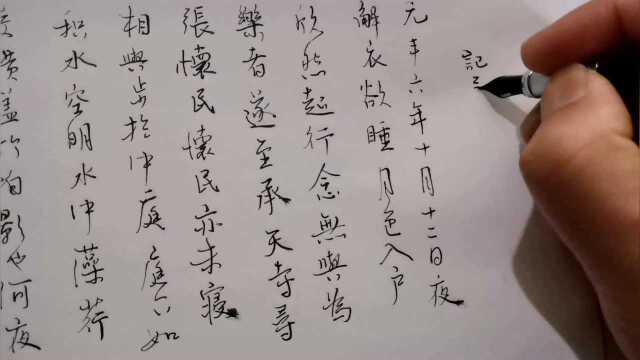 記
元丰六年十月十二日夜
解衣欲睡月色入户
欣然起行念無與為
樂者遂至承天寺尋
張懷民懷民亦未寢
相與步於中庭庭下如
积水空明水中藻荇
交横盖竹柏影也何夜